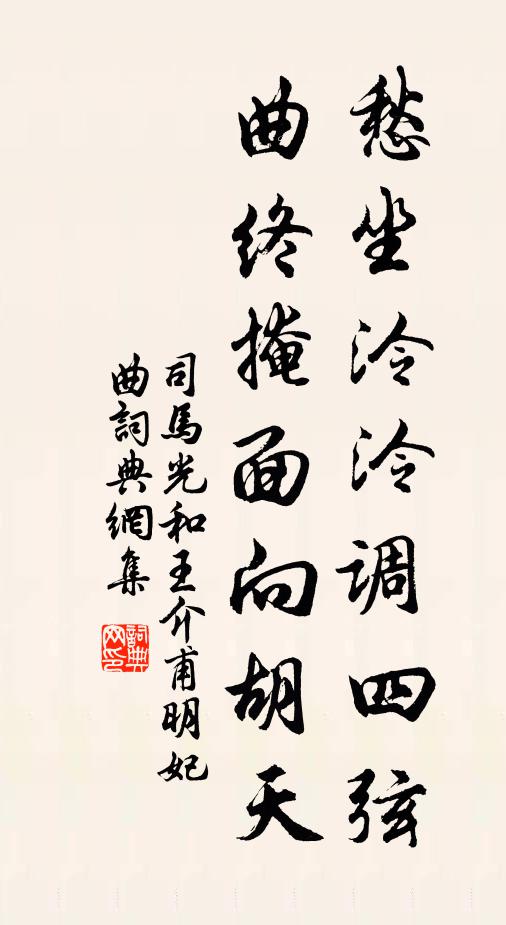 愁坐泠泠调四弦
曲终掩面向胡天
司馬光和王介甫明妃
曲詞典網集
詞典
网印